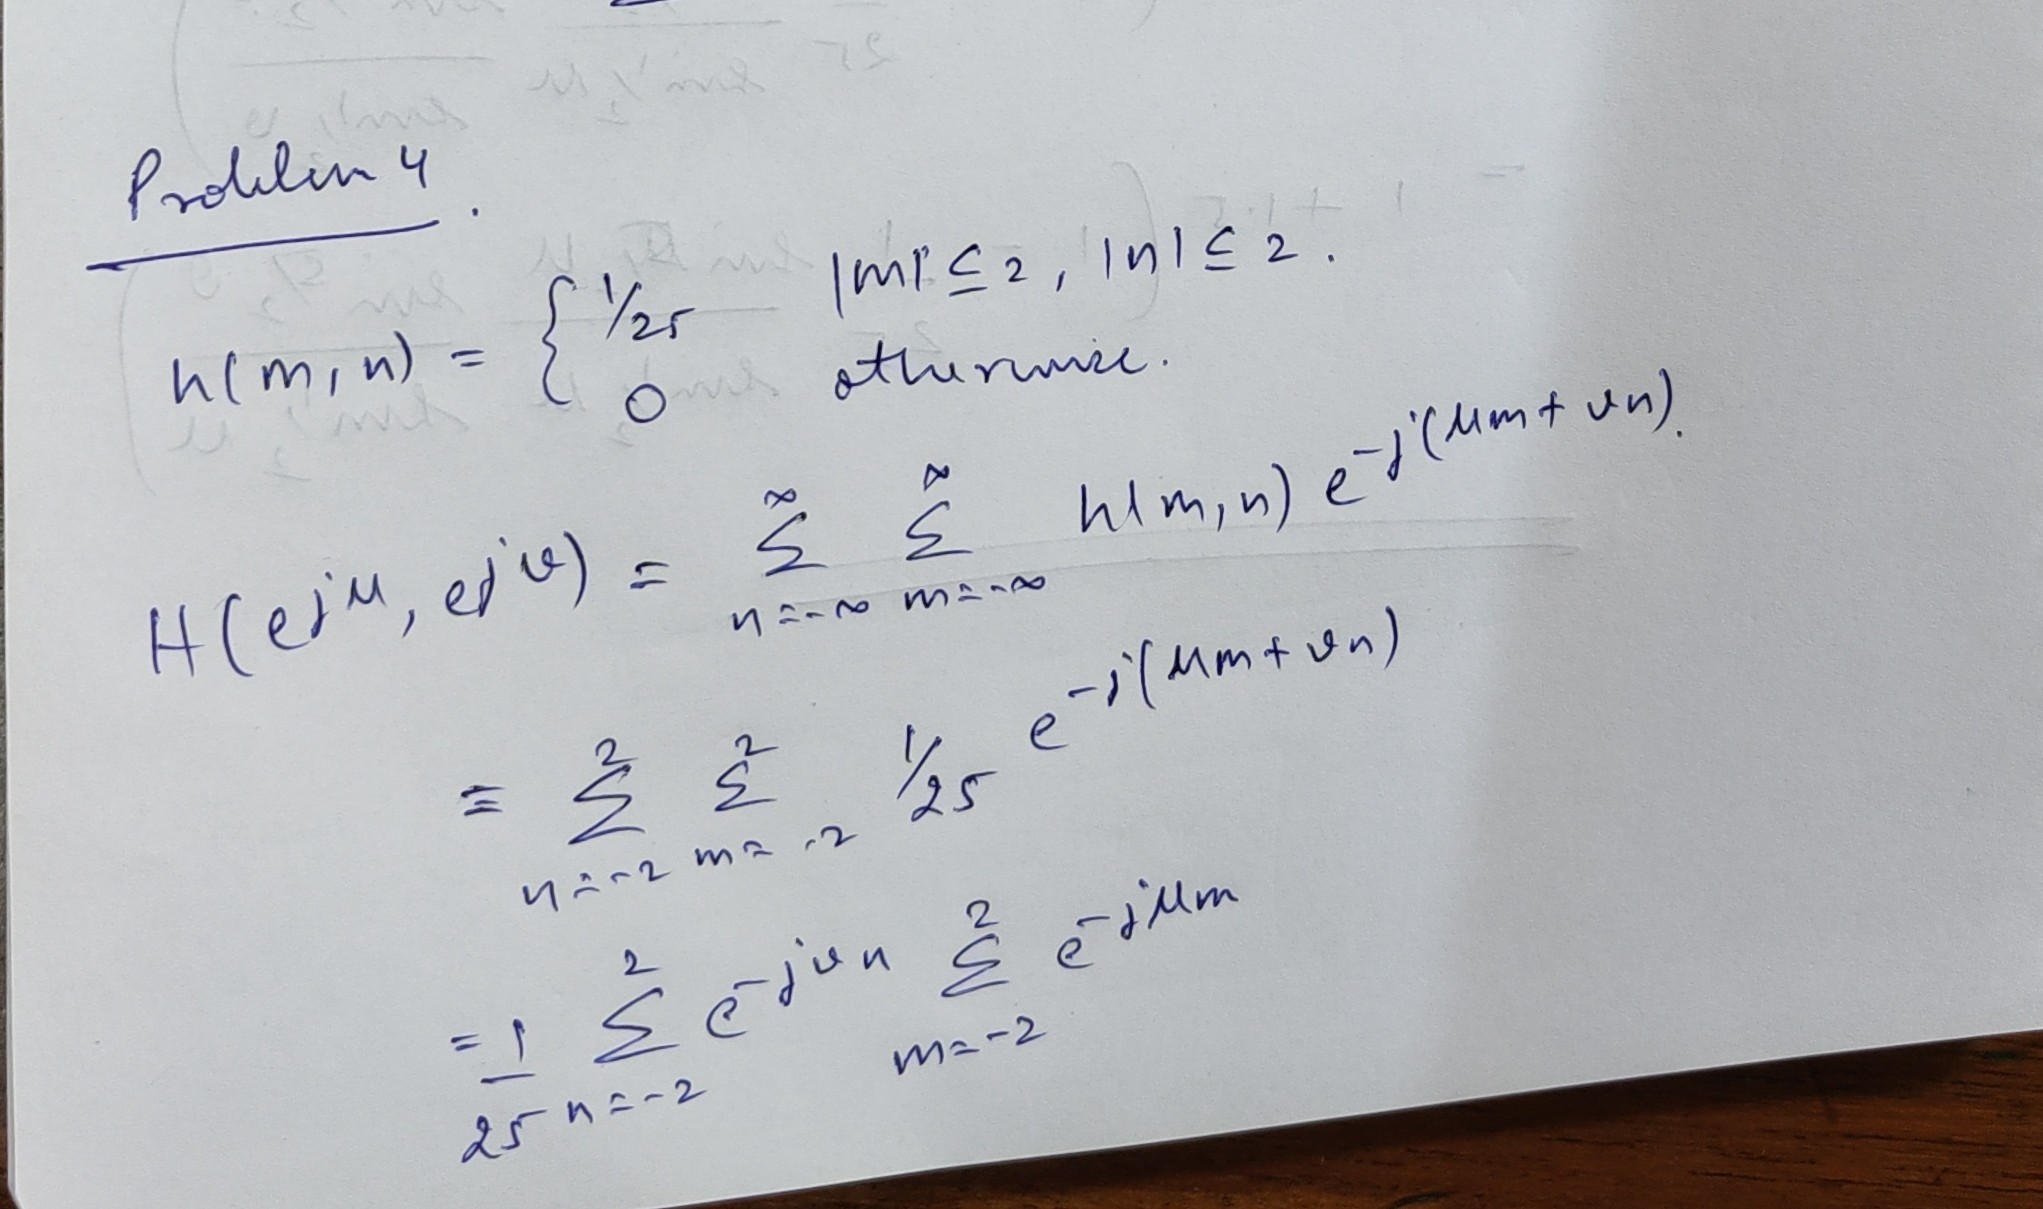 Problem 4.
h(m,n) = { 1/25 |m| ≤ 2, |n| ≤ 2.
0 otherwise.
H(e^jμ, e^jν) = ∑_{n=-∞}^{∞} ∑_{m=-∞}^{∞} h(m,n) e^-j(μm+νn).
= ∑_{n=-2}^{2} ∑_{m=-2}^{2} 1/25 e^-j(μm+νn)
= 1/25 ∑_{n=-2}^{2} e^-jνn ∑_{m=-2}^{2} e^-jμm